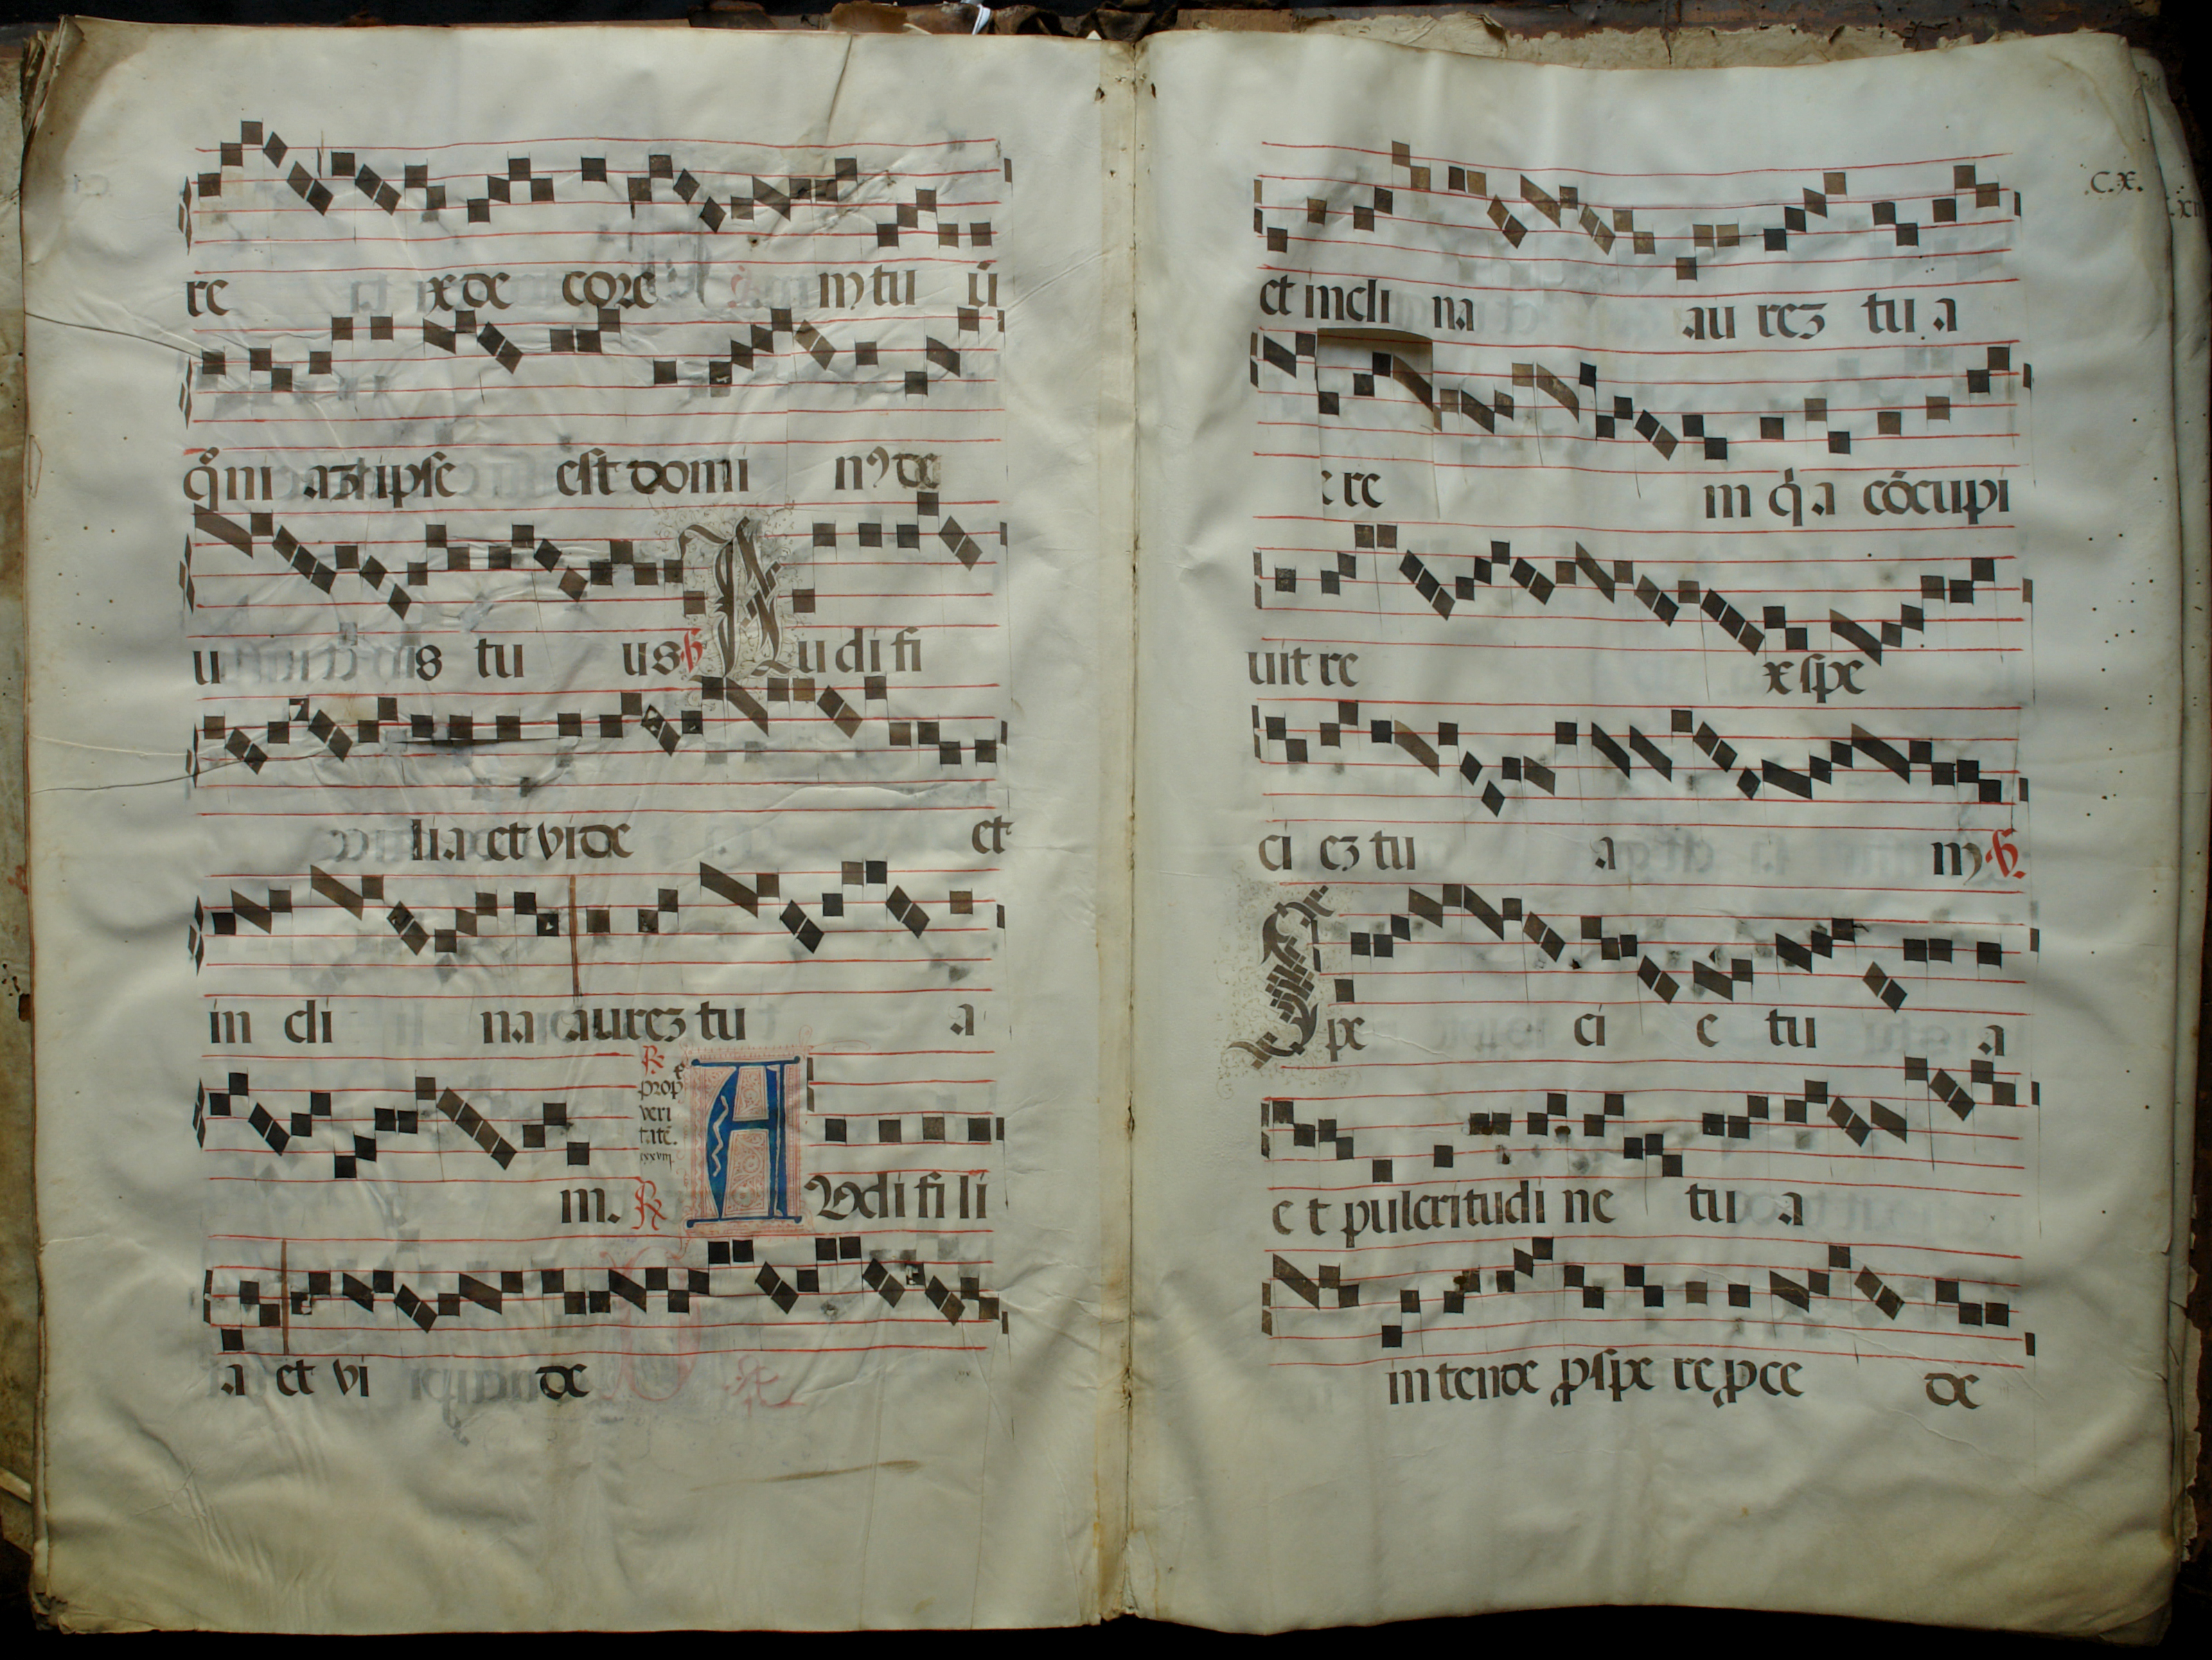 re x de corē m tu ū
qm̄ i aʒ ipse est domi nꝰ de
u s tu us ℣ Audi fi
lia et vide et
in cli na aureʒ tu a
℟
prop
veri
tatē.
m. ℟ AUdi fi li
a et vi de
.C.X.
et incli na au reʒ tu a
re in q̄ a cōcupi
uit re x spe
ci eʒ tu a m ℣.
Spe ci e tu a
e t pulcritudi ne tu a
intende ꝓspe re ꝓce de